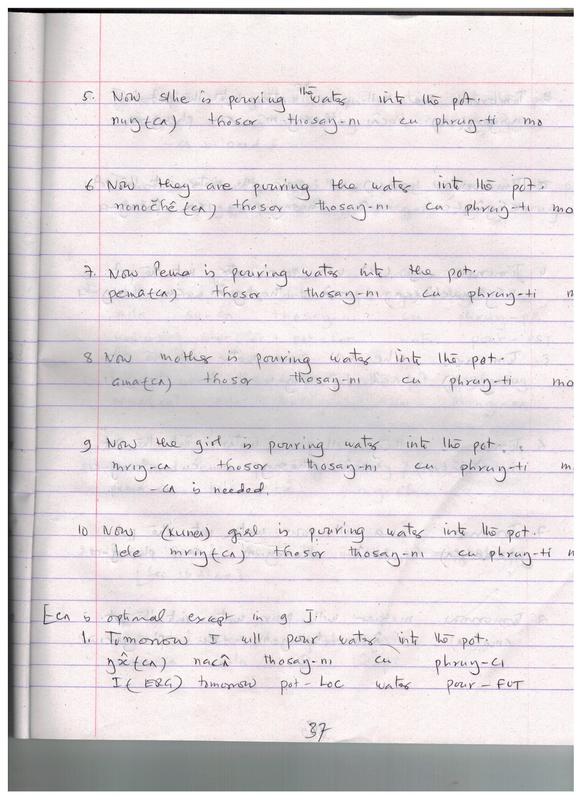 5. Now s/he is pouring the water into the pot.
nuŋ(cʌ) thosor thosaŋ-nɪ cu phruŋ-ti mo
6 Now they are pouring the water into the pot.
nonočhê(cʌ) thosor thosaŋ-nɪ cu phruŋ-ti mo
7. Now Pema is pouring water into the pot.
pema(cʌ) thosor thosaŋ-nɪ cu phruŋ-ti
8 Now mother is pouring water into the pot.
ama(cʌ) thosor thosaŋ-nɪ cu phruŋ-ti mo
9 Now the girl is pouring water into the pot.
mriŋ-cʌ thosor thosaŋ-nɪ cu phruŋ-ti m
-cʌ is needed.
10 Now (Kunda) girl is pouring water into the pot.
lele mriŋ(cʌ) thosor thosaŋ-nɪ cu phruŋ-ti m
[cʌ is optional except in 9].
1. Tomorrow I will pour water into the pot.
(cʌ) thosaŋ-nɪ cu phruŋ-ci
I (ERG) tomorrow pot-LOC water pour-FUT
37